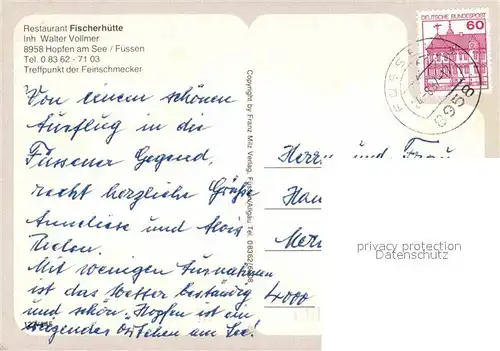 Restaurant Fischerhütte
Inh. Walter Vollmer
8958 Hopfen am See / Füssen
Tel. 0 83 62 - 71 03
Treffpunkt der Feinschmecker
Von einem schönen
Ausflug in die
Füssener Gegend,
recht herzliche Grüße
Anneliese und Alois
Mit wenigen Ausnahmen
ist das Wetter beständig
und schön. Hopfen ist ein
Örtchen am See!
Copyright by Franz Milz Verlag, Füssen/Allgäu Tel. 08362/
DEUTSCHE BUNDESPOST
60
FÜSSEN
8958
Herrn und Frau
4000
privacy protection
Datenschutz